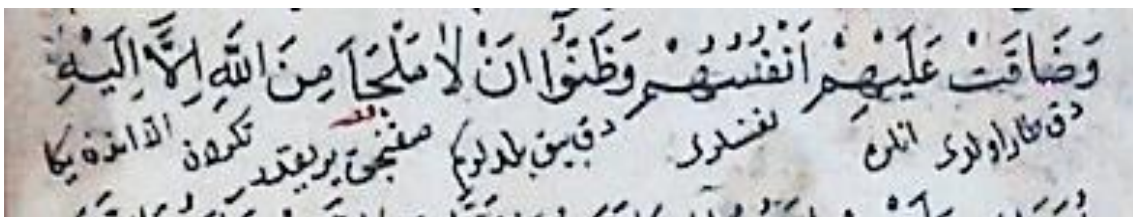 وَضَاقَتْ عَلَيْهِمْ اَنْفُسُهُمْ وَظَنُّوا اَنْ لَا مَلْجَاَ مِنَ اللّٰهِ اِلَّٓا اِلَيْهِ
دقى طار اولدى انلره نفسلرى دقى بيق بلديلركم صغنجق ير يقدر تكريدن الا اندن يكا